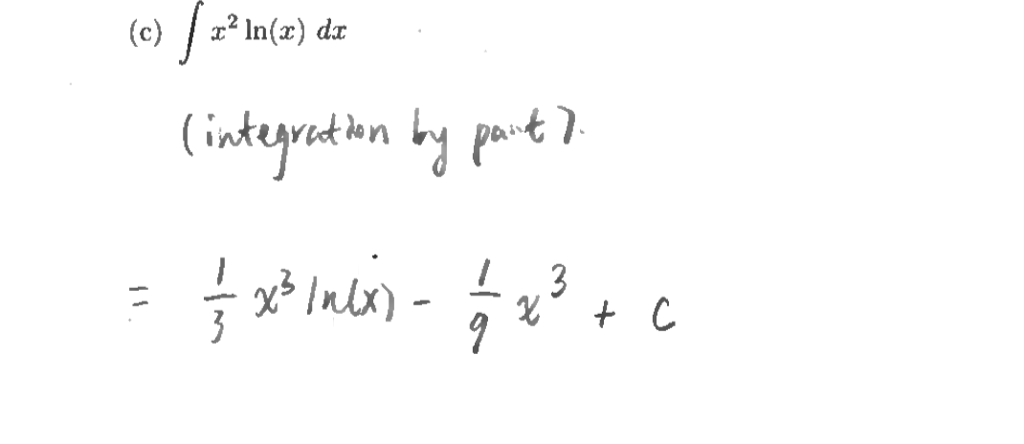 (c) ∫ x² ln(x) dx
(integration by part).
= 1/3 x³ ln(x) - 1/9 x³ + C